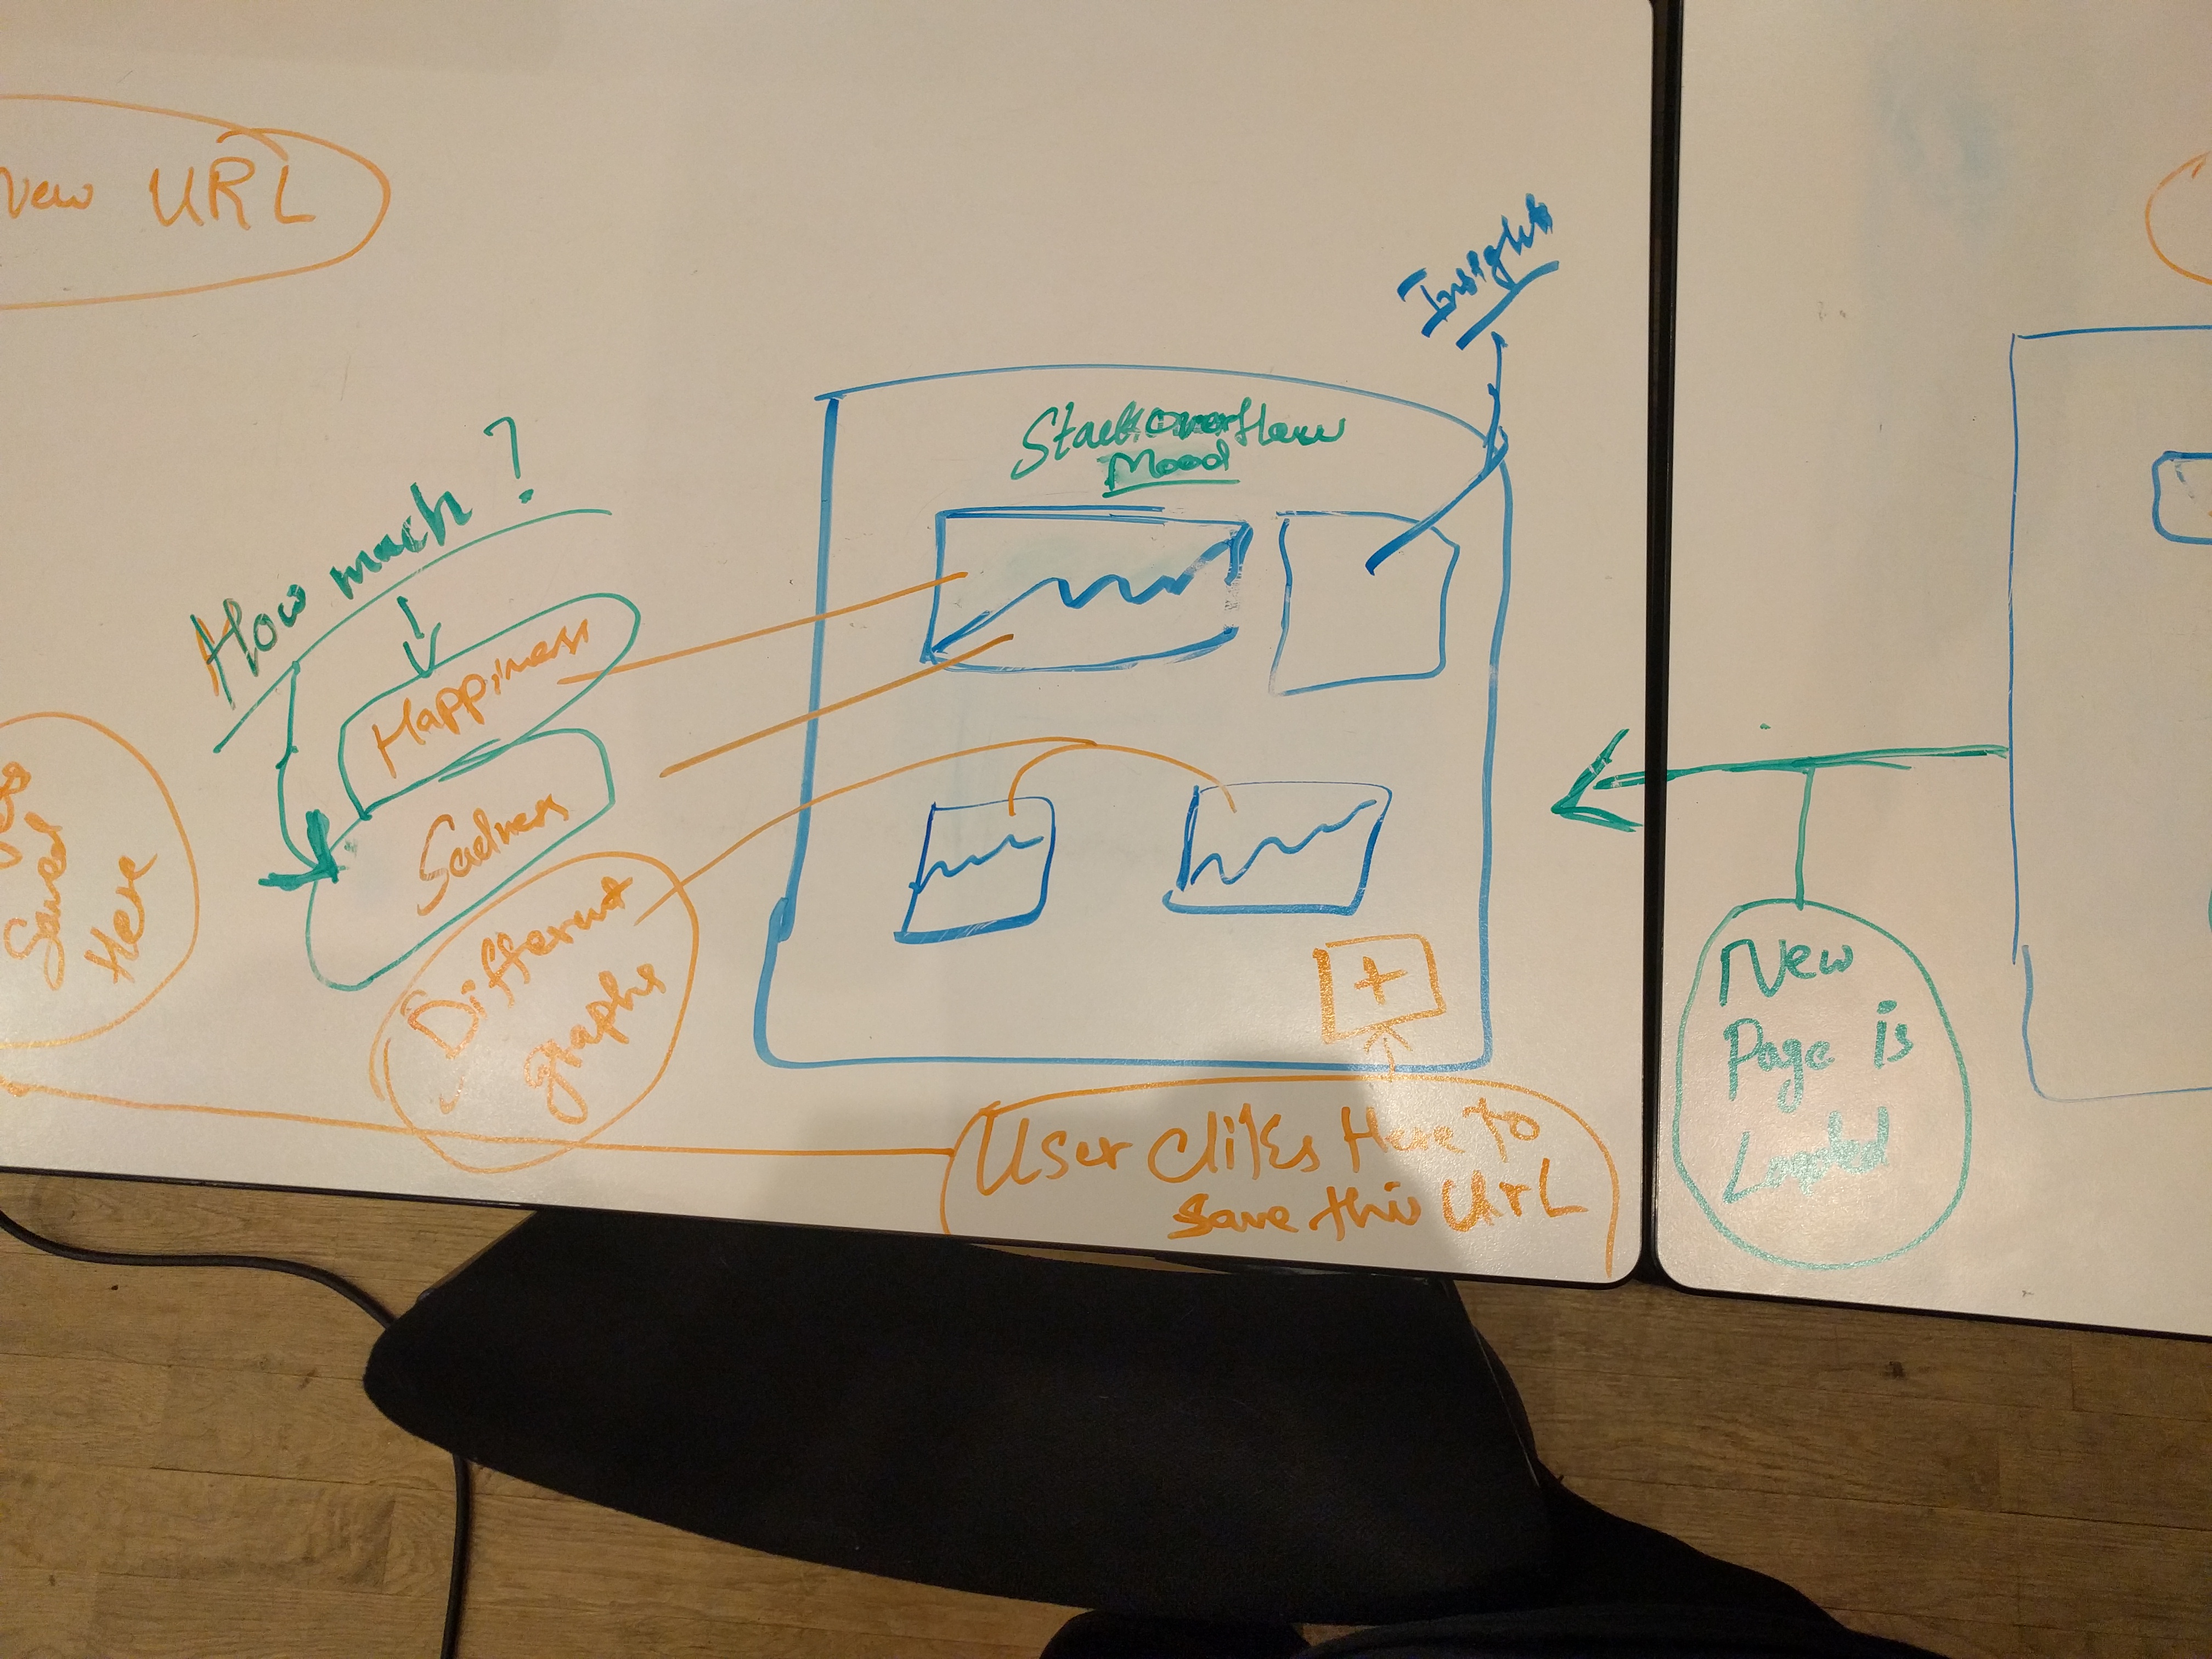 New URL
Insight
Stack overflow
Mood
How much ?
Happiness
Sadness
Saved
Here
Different
graphs
+
User cliks Here to
save this UrL
New
Page is
Loaded